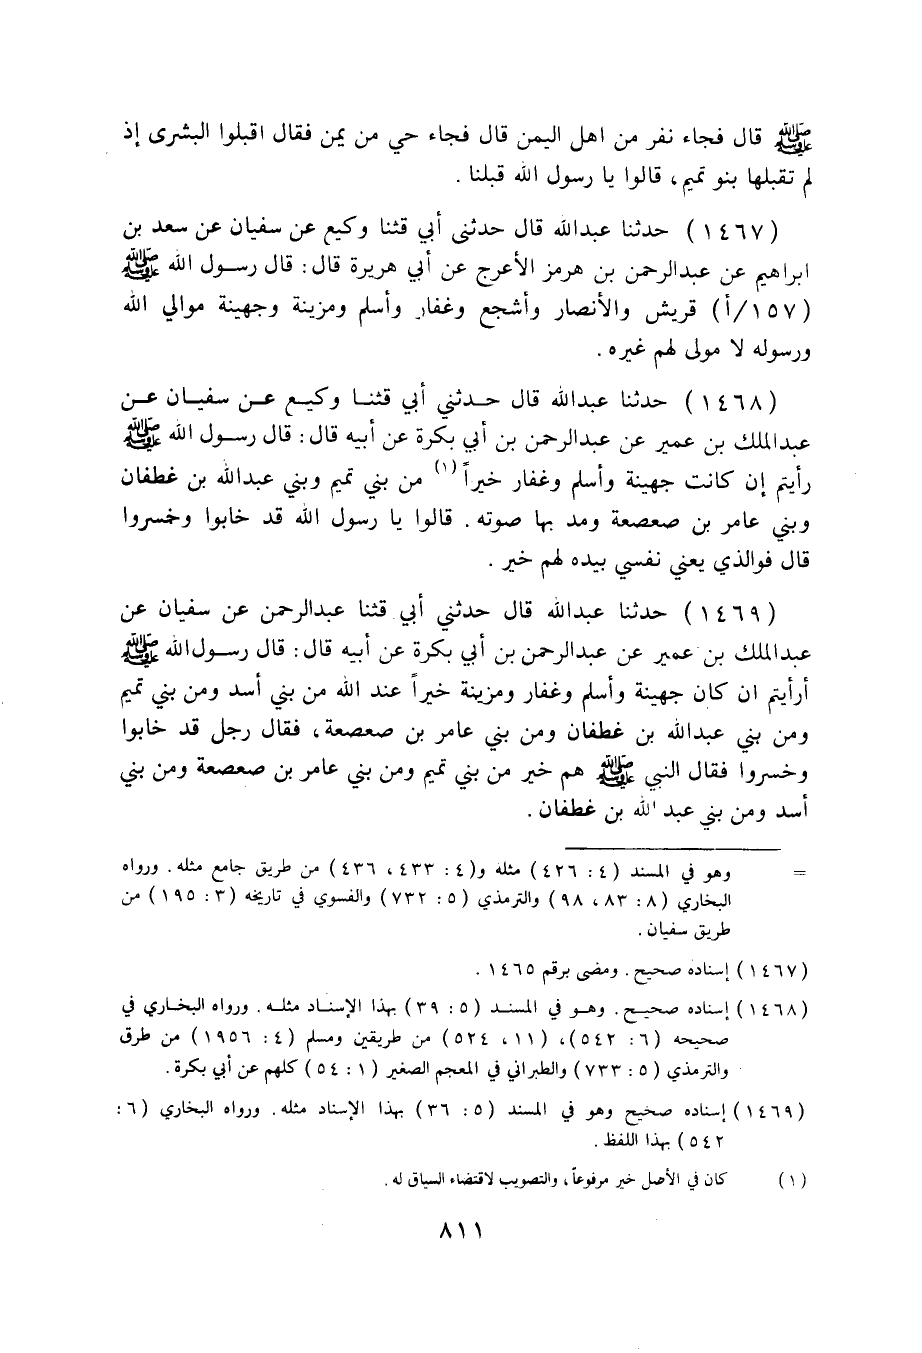 ﷺ قال فجاء نفر من اهل اليمن قال فجاء حي من يمن فقال اقبلوا البشرى إذ
لم تقبلها بنو تميم، قالوا يا رسول الله قبلنا .
(١٤٦٧) حدثنا عبدالله قال حدثنى أبي قثنا وكيع عن سفيان عن سعد بن
ابراهيم عن عبدالرحمن بن هرمز الأعرج عن أبي هريرة قال: قال رسول الله ﷺ
(١٥٧/أ) قريش والأنصار وأشجع وغفار وأسلم ومزينة وجهينة موالي الله
ورسوله لا مولى لهم غيره .
(١٤٦٨) حدثنا عبدالله قال حدثني أبي قثنا وكيع عن سفيان عن
عبدالملك بن عمير عن عبدالرحمن بن أبي بكرة عن أبيه قال: قال رسول الله ﷺ
رأيتم إن كانت جهينة وأسلم وغفار خيراً (١) من بني تميم وبني عبدالله بن غطفان
وبني عامر بن صعصعة ومد بها صوته . قالوا يا رسول الله قد خابوا وخسروا
قال فوالذي يعني نفسي بيده لهم خير .
(١٤٦٩) حدثنا عبدالله قال حدثني أبي قثنا عبدالرحمن عن سفيان عن
عبدالملك بن عمير عن عبدالرحمن بن أبي بكرة عن أبيه قال: قال رسول الله ﷺ
أرأيتم ان كان جهينة وأسلم وغفار ومزينة خيراً عند الله من بني أسد ومن بني تميم
ومن بني عبدالله بن غطفان ومن بني عامر بن صعصعة، فقال رجل قد خابوا
وخسروا فقال النبي ﷺ هم خير من بني تميم ومن بني عامر بن صعصعة ومن بني
أسد ومن بني عبد الله بن غطفان .
= وهو في المسند (٤: ٤٢٦) مثله و(٤: ٤٣٣، ٤٣٦) من طريق جامع مثله . ورواه
البخاري (٨: ٨٣، ٩٨) والترمذي (٥: ٧٣٢) والفسوي في تاريخه (٣: ١٩٥) من
طريق سفيان .
(١٤٦٧) إسناده صحيح . ومضى برقم ١٤٦٥ .
(١٤٦٨) إسناده صحيح . وهو في المسند (٥: ٣٩) بهذا الإسناد مثله . ورواه البخاري في
صحيحه (٦: ٥٤٢)، (١١، ٥٢٤) من طريقين ومسلم (٤: ١٩٥٦) من طرق
والترمذي (٥: ٧٣٣) والطبراني في المعجم الصغير (١: ٥٤) كلهم عن أبي بكرة .
(١٤٦٩) إسناده صحيح وهو في المسند (٥: ٣٦) بهذا الإسناد مثله . ورواه البخاري (٦:
٥٤٢) بهذا اللفظ .
(١) كان في الأصل خير مرفوعاً، والتصويب لاقتضاء السياق له .
٨١١